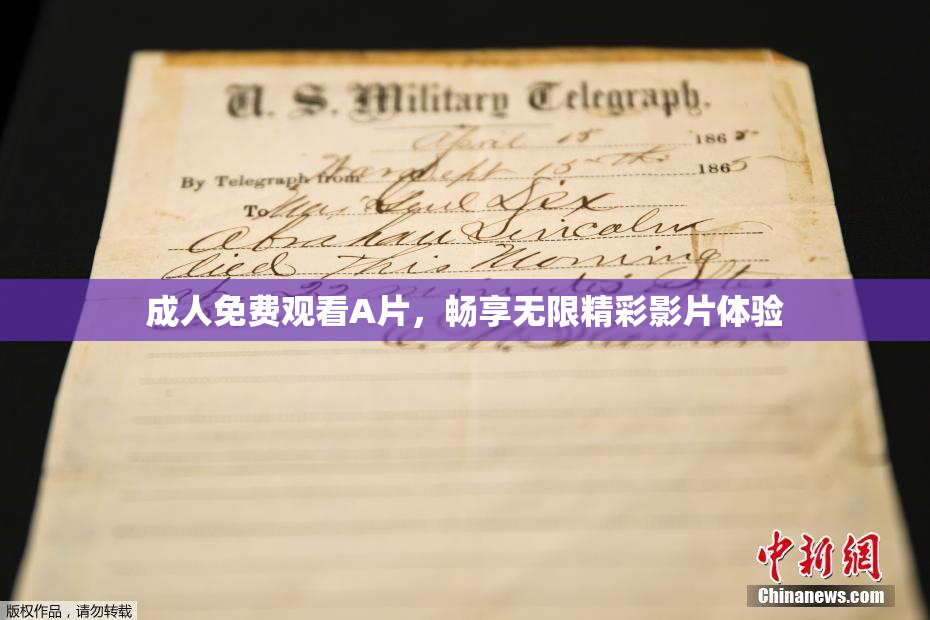 U. S. Military Telegraph.
April 15 1865
By Telegraph from War Dept 15th 1865
To Maj Genl Dix
Abraham Lincoln
died This Morning
22 minutes after
成人免费观看A片，畅享无限精彩影片体验
中新网
Chinanews.com
版权作品，请勿转载